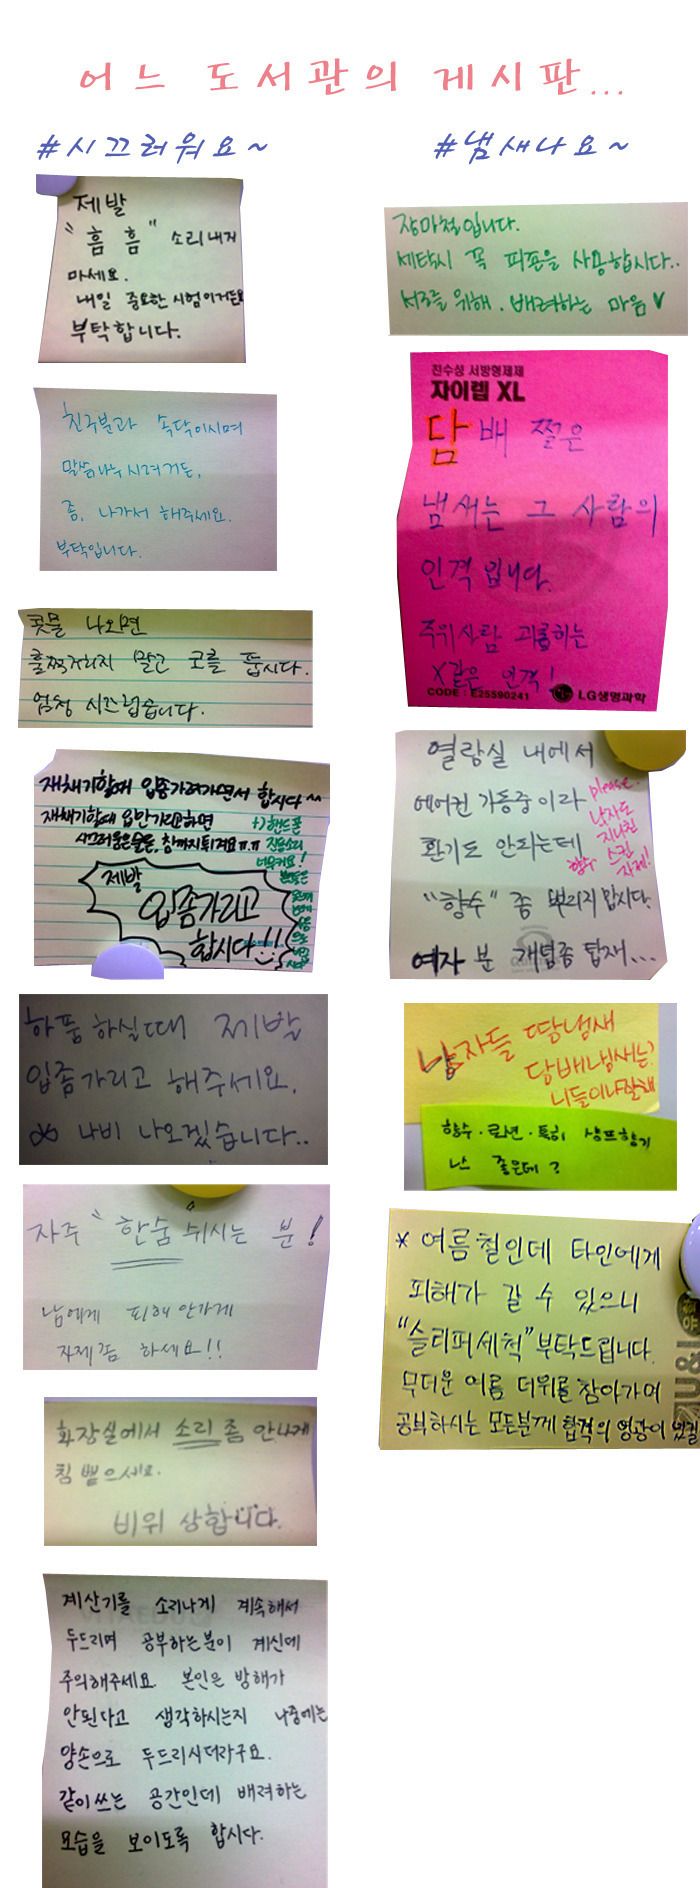 어느 도서관의 게시판...
#시끄러워요~
제발
"흠 흠" 소리내지
마세요.
내일 중요한 시험이거든요
부탁합니다.
친구분과 속닥이시며
말씀나누시려거든,
좀, 나가서 해주세요.
부탁입니다.
콧물 나오면
훌쩍거리지 말고 코를 풉시다.
엄청 시끄럽습니다.
재채기할때 입좀가려가면서 합시다^^
재채기할때 입안가리고하면
시끄러운은물론, 침까지튀겨요ㅠ.ㅠ
+) 핸드폰
진동소리
너무커요!
제발
입좀가리고
합시다!!
하품 하실때 제발
입좀가리고 해주세요.
나비 나오겠습니다..
자주 "한숨" 쉬시는 분!
남에게 피해안가게
자제좀 하세요!!
화장실에서 소리 좀 안나게
침 뱉으세요.
비위 상합니다.
계산기를 소리나게 계속해서
두드리며 공부하는분이 계신데
주의해주세요. 본인은 방해가
안된다고 생각하시는지 나중에는
양손으로 두드리시더라구요.
같이쓰는 공간인데 배려하는
모습을 보이도록 합시다.
#냄새나요~
장마철입니다.
세탁시 꼭 피죤을 사용합시다..
서로를 위해. 배려하는 마음♥
진수성 서방형제제
자이렙 XL
담배 쩔은
냄새는 그 사람의
인격입니다.
주위사람 괴롭히는
X같은 인격!
CODE : E25590241
LG생명과학
열람실 내에서
에어컨 가동중이라
환기도 안되는데
"향수" 좀 뿌리지 맙시다.
여자 분 개념좀 탑재...
please.
남자도
지나친
향수 스킨
자제!
남자들 땀냄새
담배냄새는?
니들이나잘해
향수·로션·특히 샴프향기
난 좋은데?
*여름철인데 타인에게
피해가 갈 수 있으니
"슬리퍼세척"부탁드립니다.
무더운 여름 더위를 참아가며
공부하시는 모든분께 합격의 영광이 있길